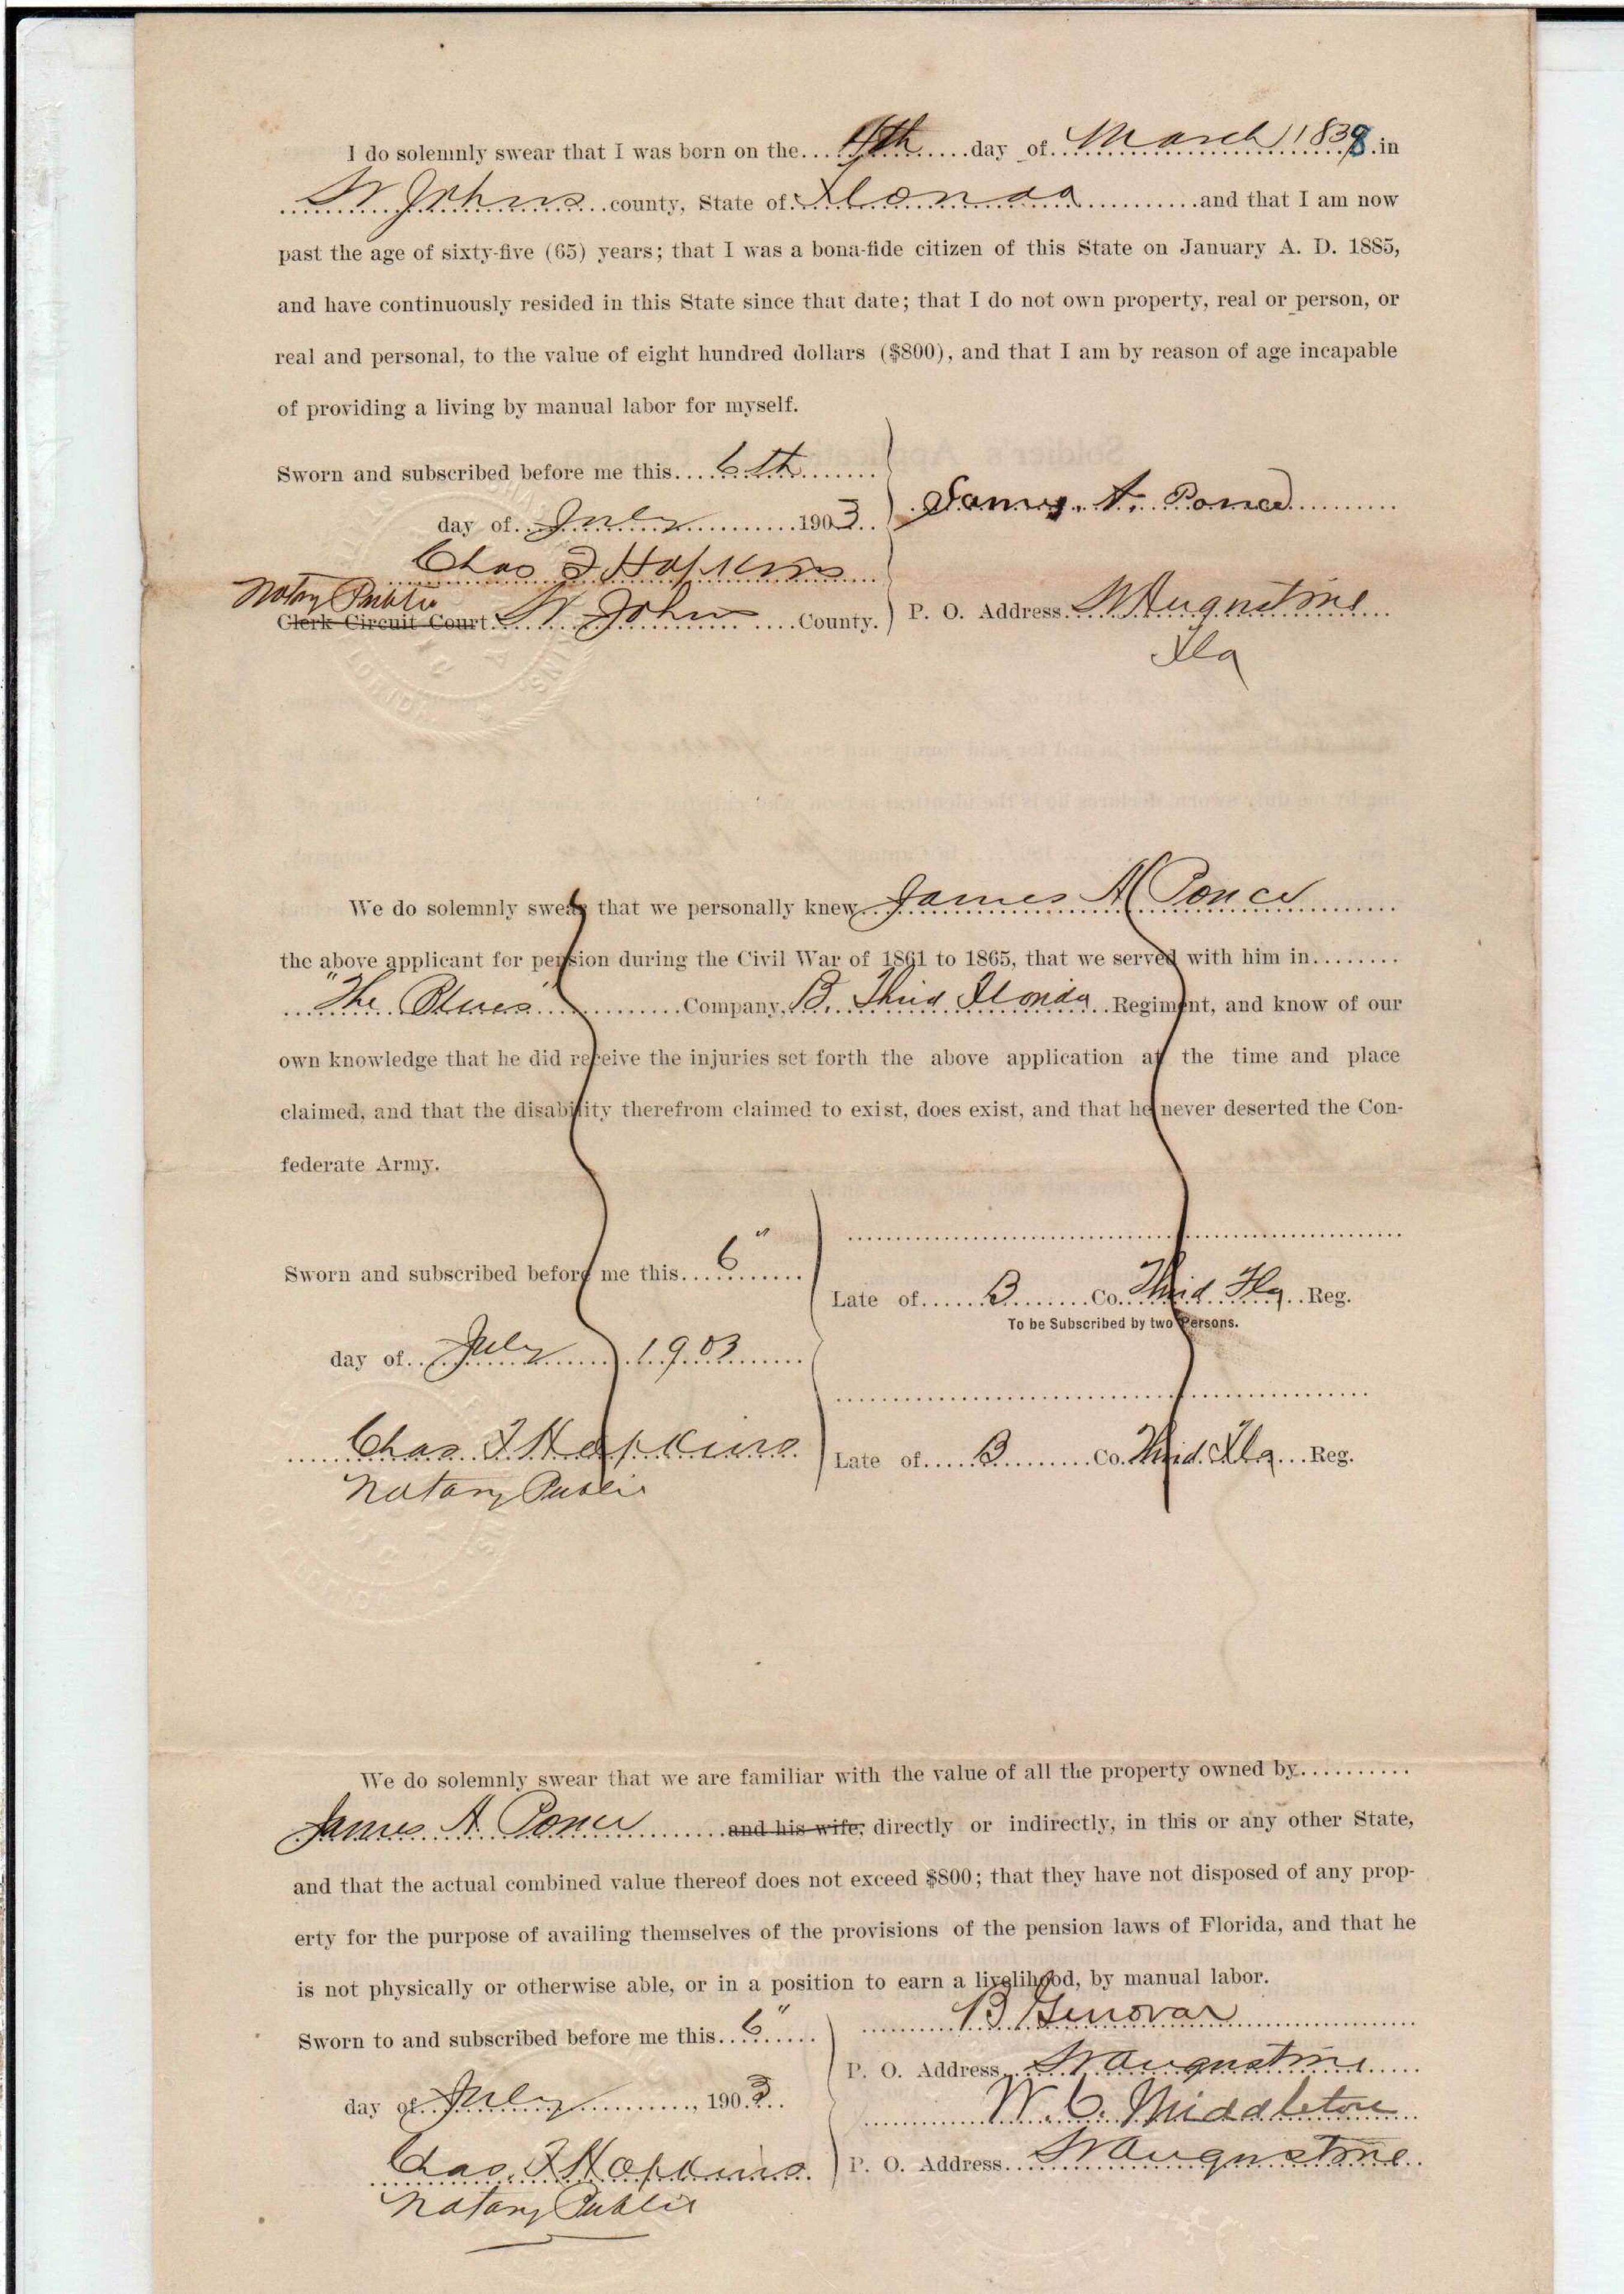 I do solemnly swear that I was born on the....4th.....day of..March 1838.in
St Johns...county, State of.Florida..........and that I am now
past the age of sixty-five (65) years; that I was a bona-fide citizen of this State on January A. D. 1885,
and have continuously resided in this State since that date; that I do not own property, real or person, or
real and personal, to the value of eight hundred dollars ($800), and that I am by reason of age incapable
of providing a living by manual labor for myself.
Sworn and subscribed before me this....6th.......
day of..July..........1903..
James. A. Ponce
Chas F Hopkins
Notary Public
Clerk Circuit Court. St John ....County.
P. O. Address. St Augustine
Fla
We do solemnly swear that we personally knew James A Ponce
the above applicant for pension during the Civil War of 1861 to 1865, that we served with him in........
"The Blues"..........Company, B. Third Florida..Regiment, and know of our
own knowledge that he did receive the injuries set forth the above application at the time and place
claimed, and that the disability therefrom claimed to exist, does exist, and that he never deserted the Con-
federate Army.
Sworn and subscribed before me this....6"....
Late of......B.......Co. Third Fla..Reg.
To be Subscribed by two Persons.
day of..July.......1903
Chas F Hopkins
Late of.....B.........Co. Third. Fla...Reg.
Notary Public
We do solemnly swear that we are familiar with the value of all the property owned by..........
James A. Ponce.......and his wife, directly or indirectly, in this or any other State,
and that the actual combined value thereof does not exceed $800; that they have not disposed of any prop-
erty for the purpose of availing themselves of the provisions of the pension laws of Florida, and that he
is not physically or otherwise able, or in a position to earn a livelihood, by manual labor.
B Genovar
Sworn to and subscribed before me this..6".....
P. O. Address. St Augustine
day of..July........, 1903..
W. C. Middleton
Chas. F Hopkins
P. O. Address. St Augustine
Notary Public